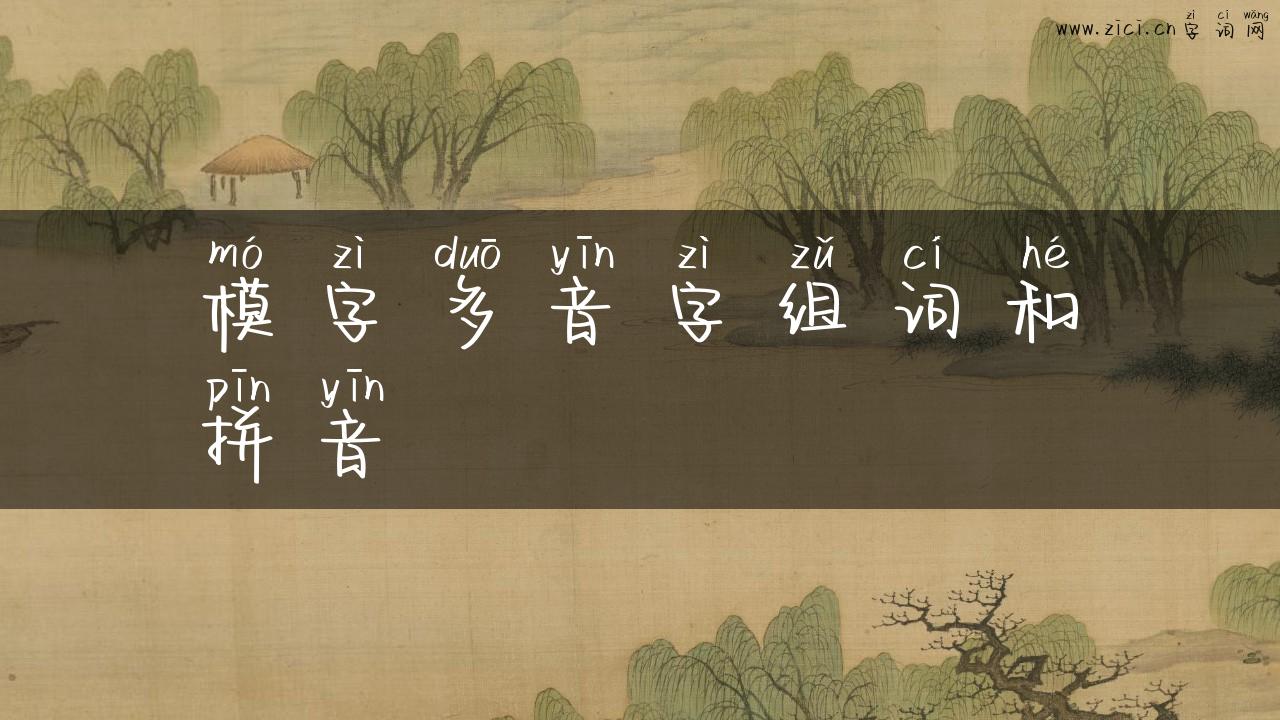 zì cí wǎng
www.zici.cn 字词网
mó zì duō yīn zì zǔ cí hé
模字多音字组词和
pīn yīn
拼音